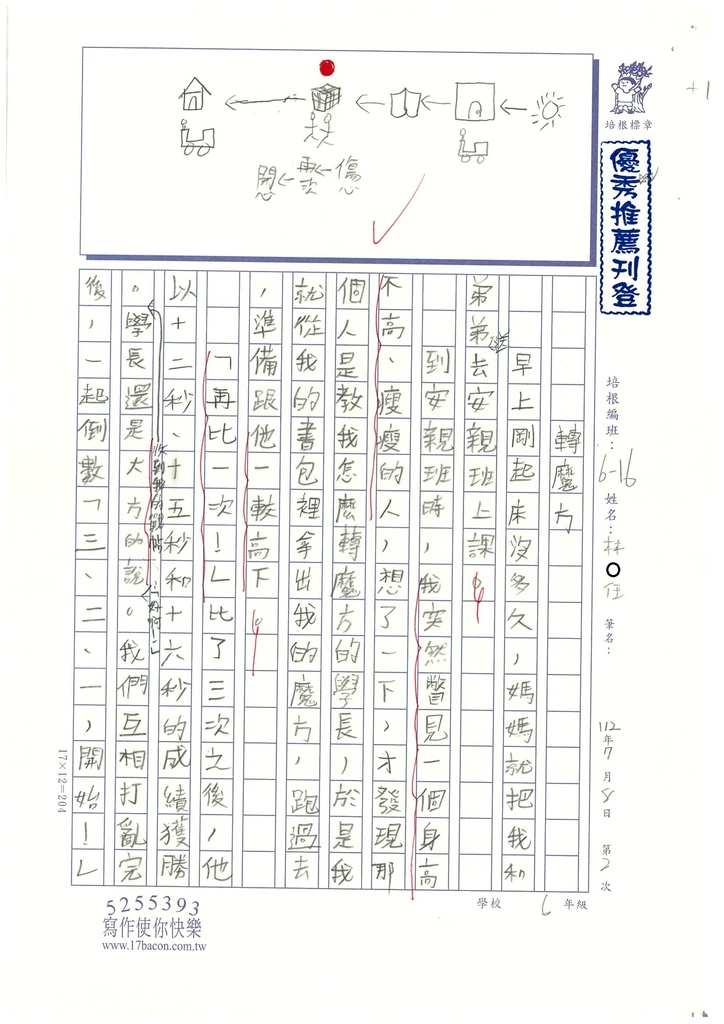 +1
培根標章
優秀推薦刊登
培根編班：6-16 姓名：林○任 筆名： 112年7月8日 第2次
6年級 學校
傷心←再次←開心
轉魔方
早上剛起床沒多久，媽媽就把我和
弟弟送去安親班上課。
到安親班時，我突然瞥見一個身高
不高、瘦瘦的人，想了一下，才發現那
個人是教我怎麼轉魔方的學長，於是我
就從我的書包裡拿出我的魔方，跑過去
，準備跟他一較高下。
「再比一次！」比了三次之後，他
以十二秒、十五秒和十六秒的成績獲勝
。學長還是大方的說：「好啊！」我們互相打亂完
後，一起倒數「三、二、一，開始！」
17×12=204
5255393
寫作使你快樂
www.17bacon.com.tw